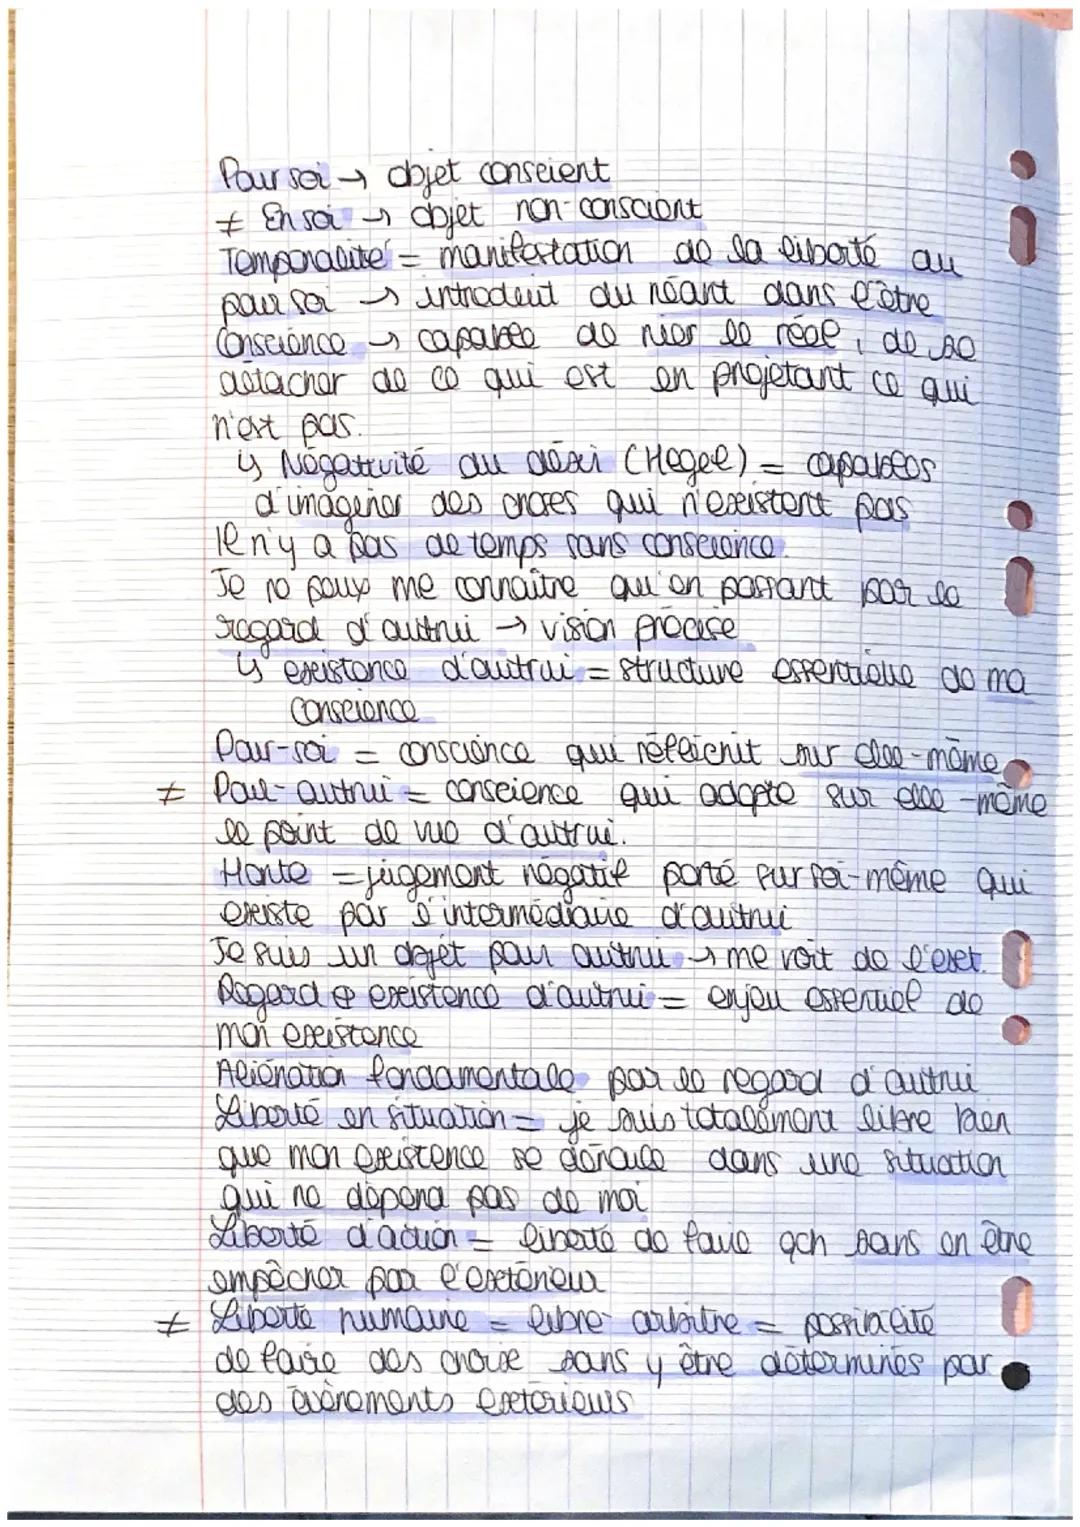 Pour soi → objet conscient
≠ En soi → objet non-conscient
Temporalité = manifestation de la liberté du
pour soi → introduit du néant dans l'être
Conscience → capable de nier le réel, de se
détacher de ce qui est en projetant ce qui
n'est pas.
↳ Négativité du désir (Hegel) = capables
d'imaginer des choses qui n'existent pas
Il n'y a pas de temps sans conscience.
Je ne peux me connaître qu'en passant par le
regard d'autrui → vision précise
↳ existence d'autrui = structure essentielle de ma
conscience
Pour-soi = conscience qui réfléchit sur elle-même
≠ Pour-autrui = conscience qui adopte sur elle-même
le point de vue d'autrui.
Honte = jugement négatif porté sur soi-même qui
existe par l'intermédiaire d'autrui
Je suis un objet pour autrui → me voit de l'ext.
Regard & existence d'autrui = enjeu essentiel de
mon existence
Aliénation fondamentale par le regard d'autrui
Liberté en situation = je suis totalement libre bien
que mon existence se déroule dans une situation
qui ne dépend pas de moi
Liberté d'action = liberté de faire qch sans en être
empêcher par l'extérieur
≠ Liberté humaine = libre-arbitre = possibilité
de faire des choix sans y être déterminés par
des évènements extérieurs